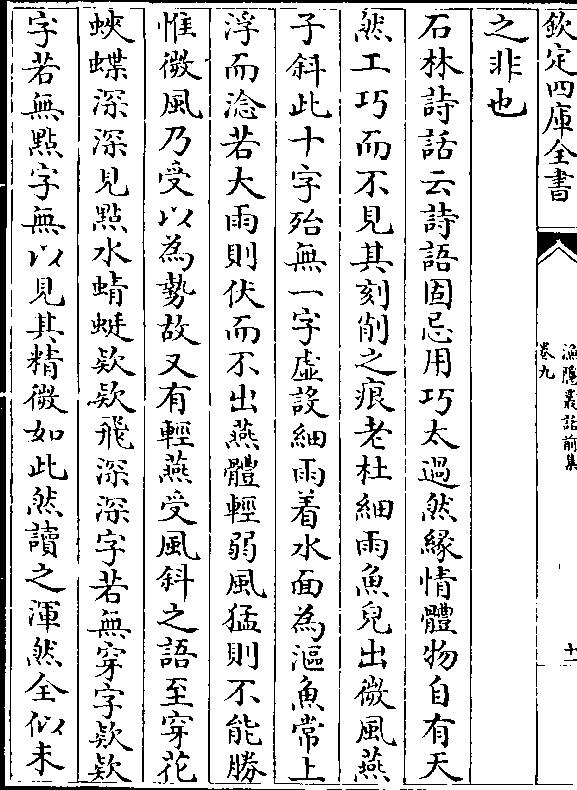 欽定四庫全書
漁隱叢話前集
卷九
十一
之非也
石林詩話云詩語固忌用巧太過然緣情體物自有天
然工巧而不見其刻削之痕老杜細雨魚兒出微風燕
子斜此十字殆無一字虛設細雨着水面為漚魚常上
浮而淰若大雨則伏而不出燕體輕弱風猛則不能勝
惟微風乃受以為勢故又有輕燕受風斜之語至穿花
蛺蝶深深見點水蜻蜓欵欵飛深深字若無穿字欵欵
字若無點字無以見其精微如此然讀之渾然全似未